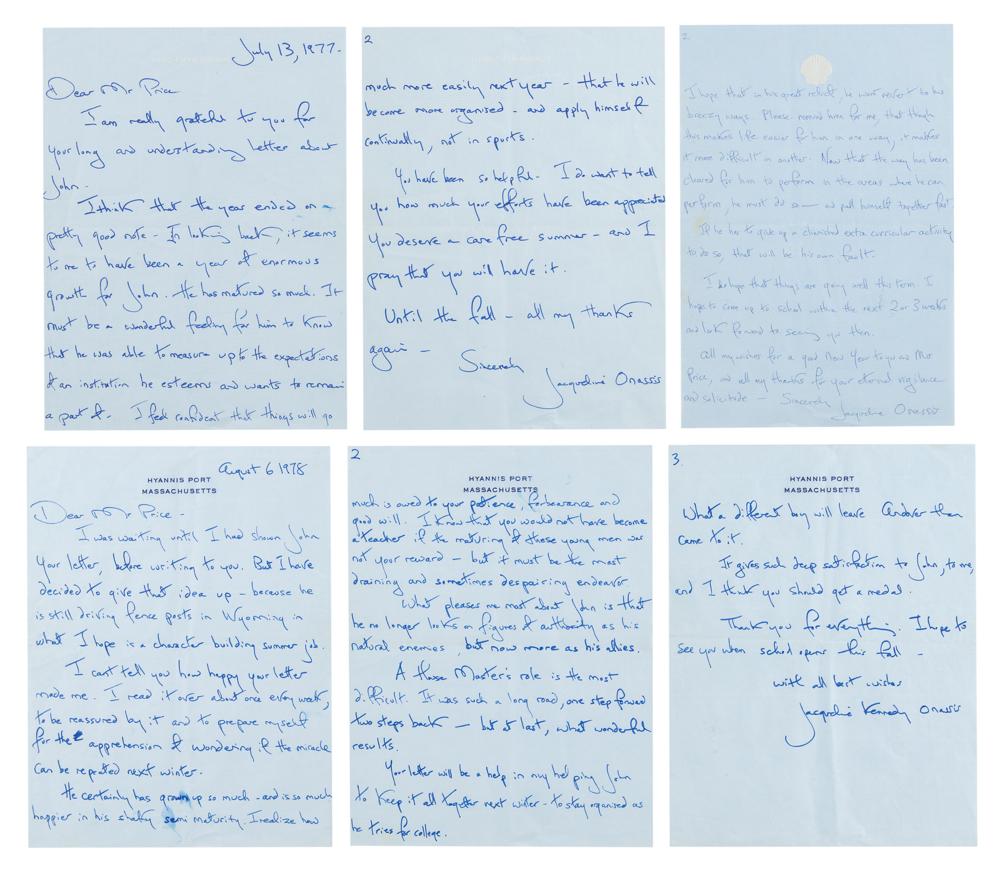 July 13, 1977.
Dear Mr Price
I am really grateful to you for
your long and understanding letter about
John.
I think that the year ended on a
pretty good note - In looking back, it seems
to me to have been a year of enormous
growth for John. He has matured so much. It
must be a wonderful feeling for him to know
that he was able to measure up to the expectations
of an institution he esteems and wants to remain
a part of. I feel confident that things will go
2
much more easily next year - that he will
become more organised - and apply himself
continually, not in sports.
You have been so helpful. I do want to tell
you how much your efforts have been appreciated
You deserve a care free summer - and I
pray that you will have it.
Until the fall - all my thanks
again -
Sincerely
Jacqueline Onassis
2
I hope that in his great relief, he wont revert to his
breezy ways. Please remind him for me, that though
this makes life easier for him in one way, it makes
it more difficult in another. Now that the way has been
cleared for him to perform in the areas where he can
perform, he must do so - and pull himself together fast.
If he has to give up a cherished extra curricular activity
to do so, that will be his own fault.
I do hope that things are going well this term. I
hope to come up to school within the next 2 or 3 weeks
and look forward to seeing you then.
All my wishes for a good New Year to you and Mrs
Price, and all my thanks for your eternal vigilance
and solicitude - Sincerely
Jacqueline Onassis
August 6 1978
HYANNIS PORT
MASSACHUSETTS
Dear Mr Price -
I was waiting until I had shown John
your letter, before writing to you. But I have
decided to give that idea up - because he
is still driving fence posts in Wyoming in
what I hope is a character building summer job.
I can't tell you how happy your letter
made me. I read it over about once every week,
to be reassured by it and to prepare myself
for the apprehension of wondering if the miracle
can be repeated next winter.
He certainly has grown up so much - and is so much
happier in his shaky semi maturity. I realize how
2
HYANNIS PORT
MASSACHUSETTS
much is owed to your patience, forbearance and
good will. I know that you would not have become
a teacher if the maturing of these young men was
not your reward - but it must be the most
draining and sometimes despairing endeavor
What pleases me most about John is that
he no longer looks on figures of authority as his
natural enemies, but now more as his allies.
A House Master's role is the most
difficult. It was such a long road, one step forward
two steps back - but at last, what wonderful
results.
Your letter will be a help in my helping John
to keep it all together next winter - to stay organised as
he tries for college.
3.
HYANNIS PORT
MASSACHUSETTS
What a different boy will leave Andover than
came to it.
It gives such deep satisfaction to John, to me,
and I think you should get a medal.
Thank you for everything. I hope to
see you when school opens this fall -
with all best wishes
Jacqueline Kennedy Onassis